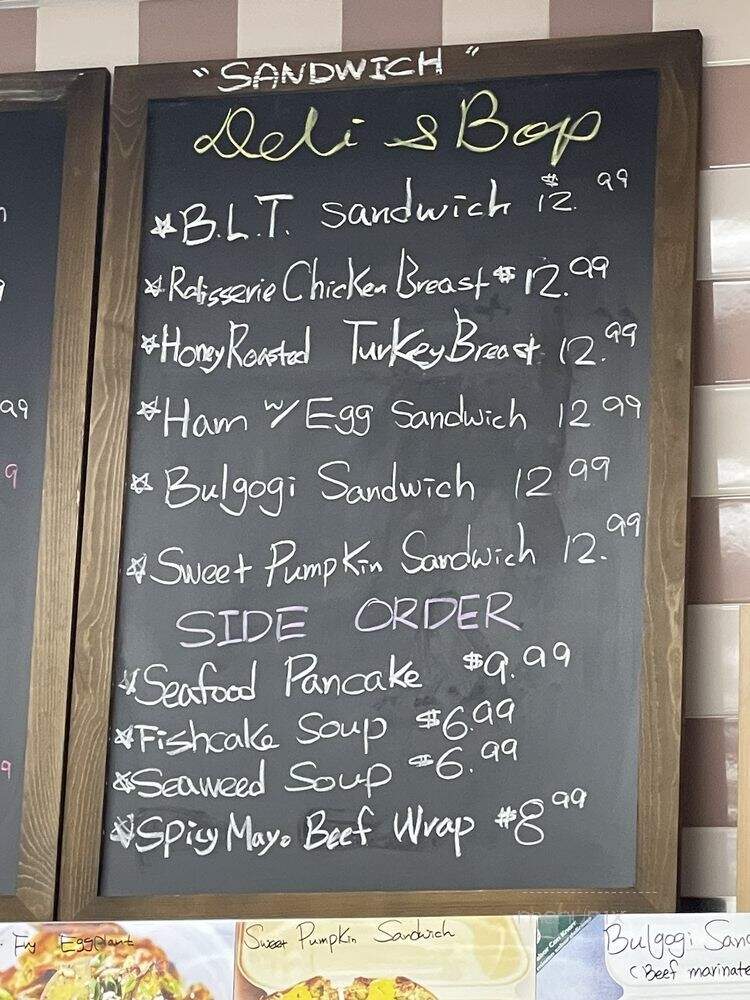 "SANDWICH"
Deli & Bop
B.L.T. Sandwich $12.99
Ratisserie Chicken Breast $12.99
Honey Roasted Turkey Breast 12.99
Ham w/ Egg Sandwich 12 99
Bulgogi Sandwich 12 99
Sweet Pumpkin Sandwich 12.99
SIDE ORDER
Seafood Pancake $9.99
Fishcake Soup $6.99
Seaweed Soup $6.99
Spicy Mayo Beef Wrap $8 99
Fry Eggplant
Sweet Pumpkin Sandwich
Bulgogi
(Beef